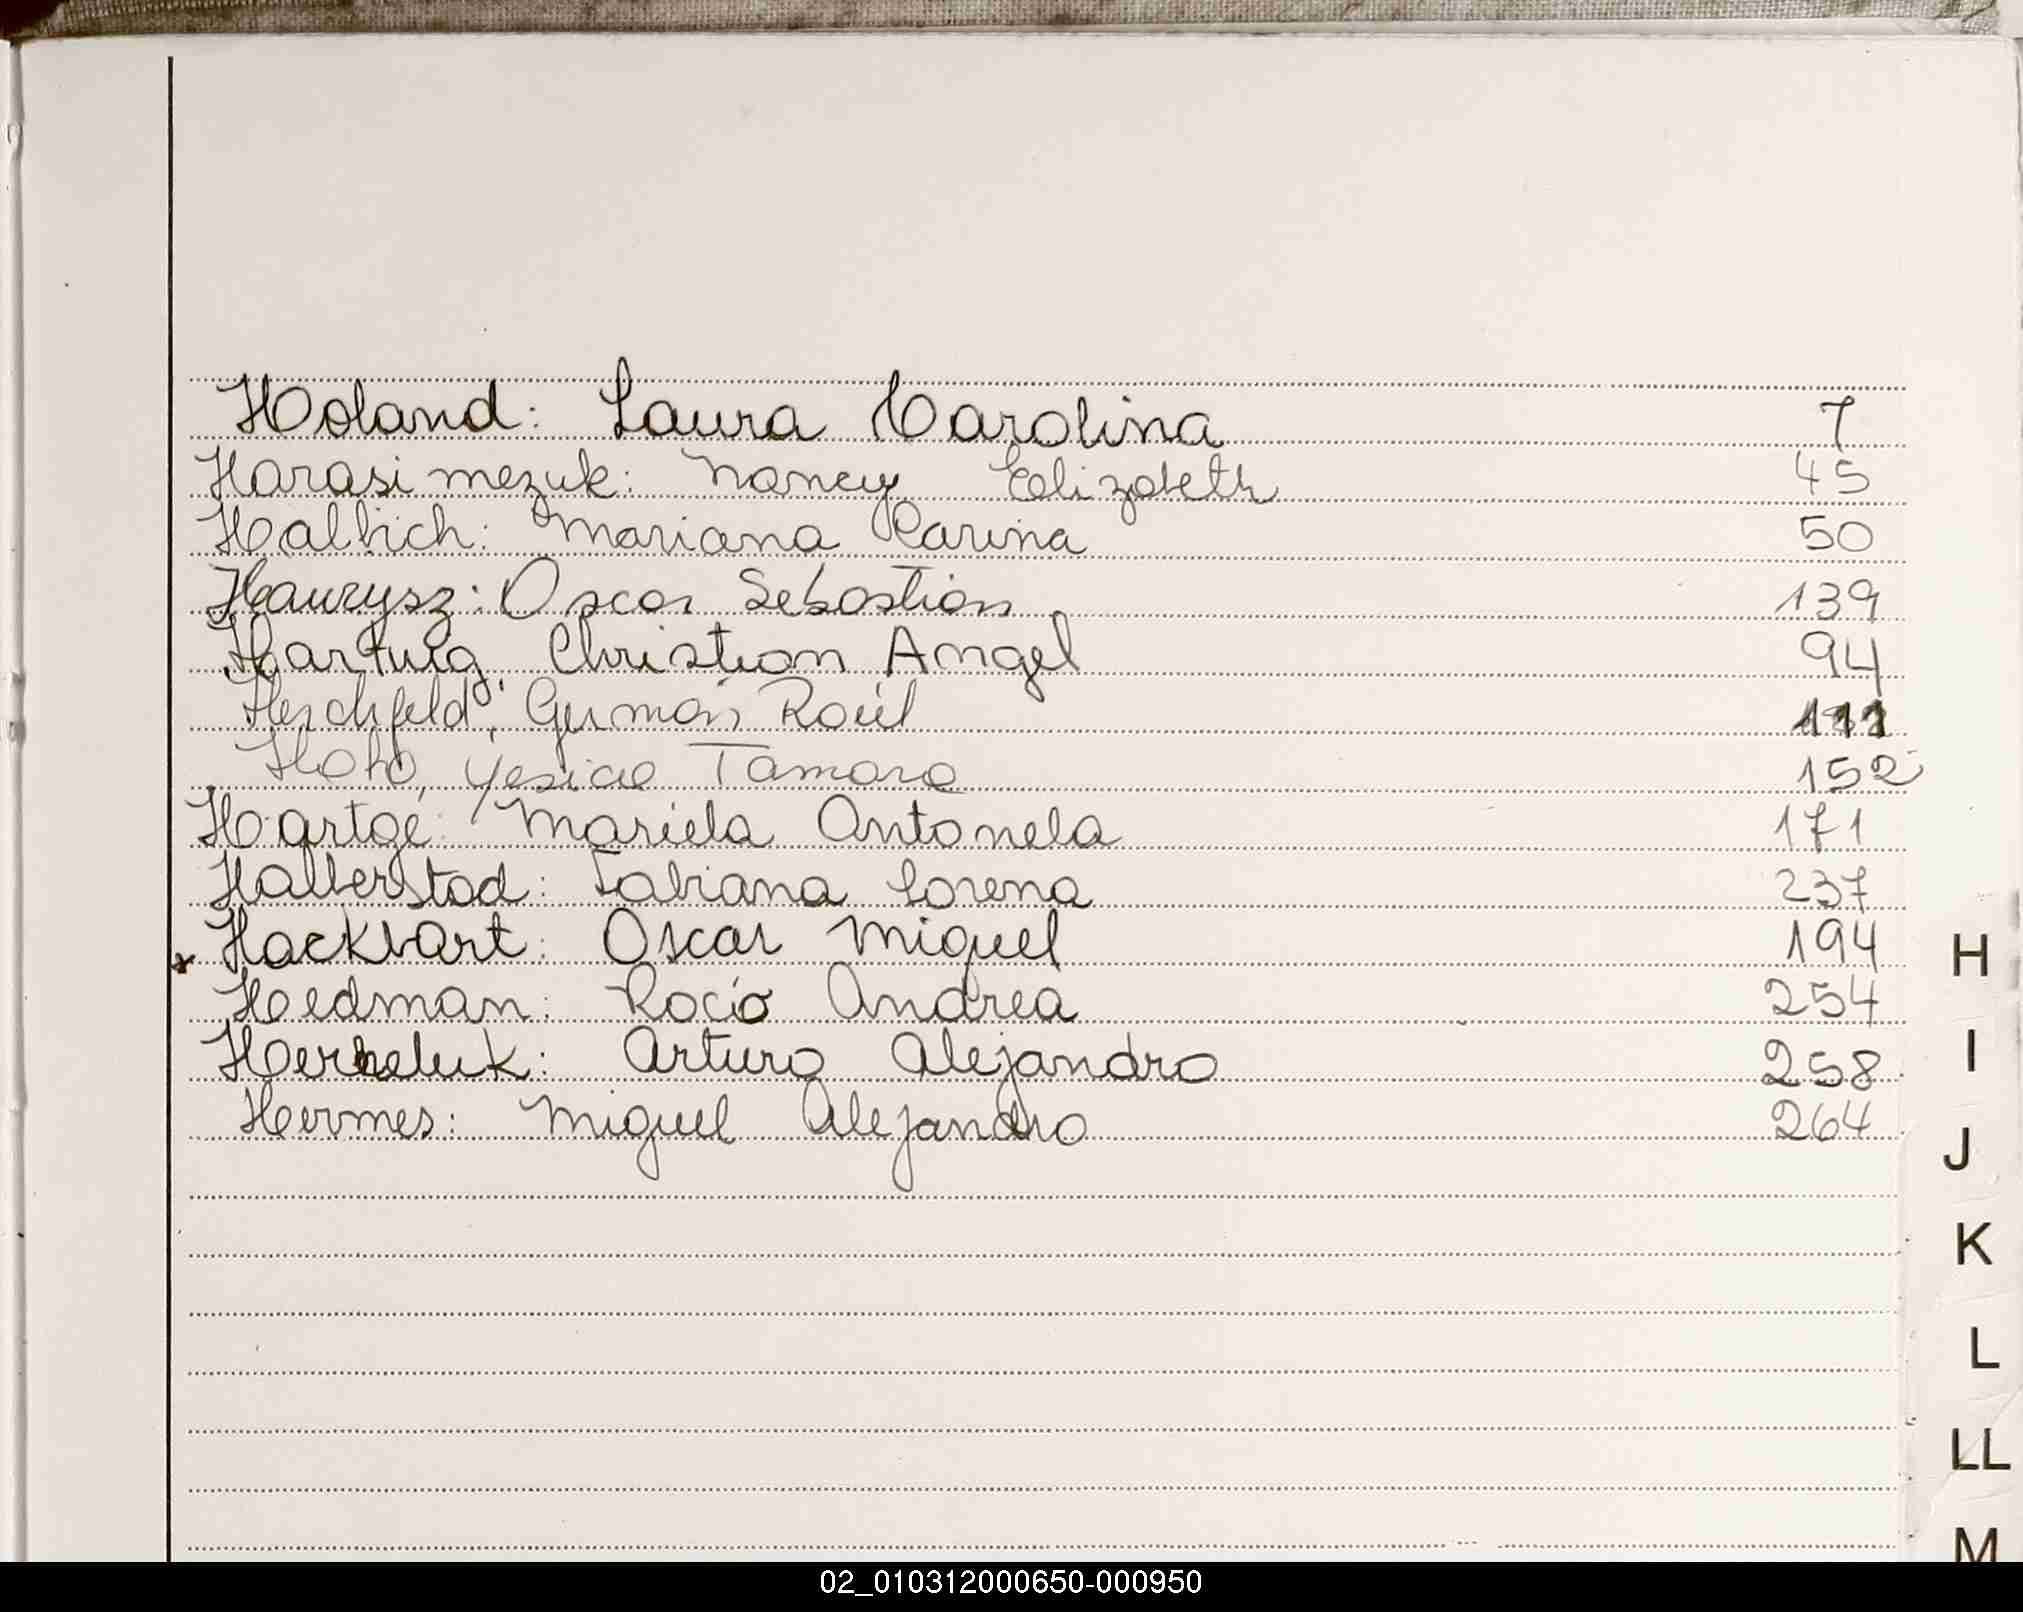 Holand: Laura Carolina 7
Harasimezuk: Nancy Elizabeth 45
Halbich: Mariana Carina 50
Haurysz: Oscar Sebastián 139
Hartwig, Christian Angel 94
Herchfeld, Germán Raúl 111
Hoho, Yesica Tamara 152
Hartge: Mariela Antonela 171
Halberstad: Fabiana Lorena 237
Hackbart: Oscar Miguel 194
Hedman: Rocío Andrea 254
Arturo Alejandro 258
Hermes: Miguel Alejandro 264
H
I
J
K
L
LL
M
02_010312000650-000950